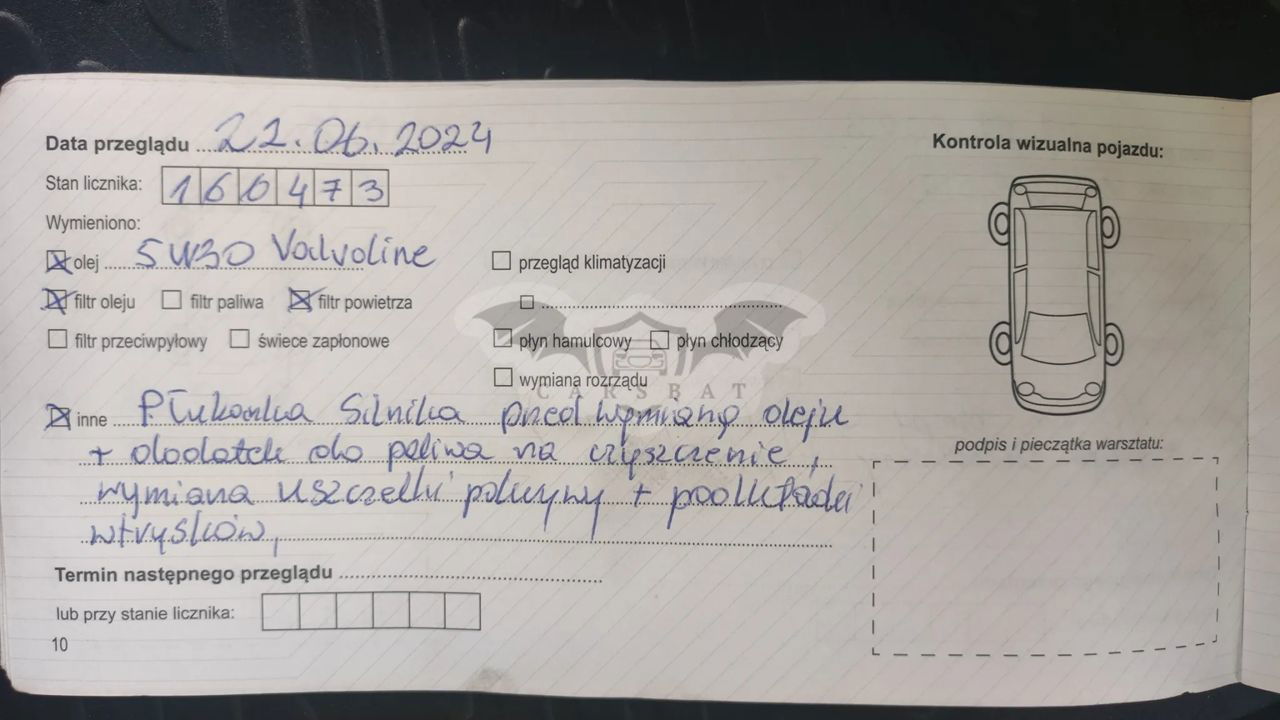 Data przeglądu 22.06.2024
Kontrola wizualna pojazdu:
Stan licznika: 160473
Wymieniono:
olej 5W30 Valvoline
przegląd klimatyzacji
filtr oleju filtr paliwa filtr powietrza
filtr przeciwpyłowy świece zapłonowe
płyn hamulcowy płyn chłodzący
wymiana rozrządu
CARSBAT
inne Płukanka Silnika przed wymianą oleju
+ dodatek do paliwa na czyszczenie,
wymiana uszczelki pokrywy + podkładki
wtrysków,
podpis i pieczątka warsztatu:
Termin następnego przeglądu
lub przy stanie licznika:
10